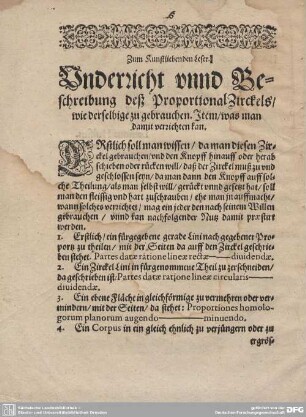 Zum Kunstliebenden Leser.
Vnderricht vnnd Be-
schreibung deß Proportional Zirckels/
wie derselbige zu gebrauchen. Item/ was man
damit verrichten kan.
ERstlich soll man wissen/ da man diesen Zir-
ckel gebrauchen/ vnd den Knopff hinauff oder herab
schieben oder rücken will/ daß der Zirckel muß zu vnd
geschlossen seyn/ da man dann den Knopff auff sol-
che Theilung/ als man selbst will/ gerückt vnnd gesetzt hat/ soll
man den fleissig vnd hart zuschrauben/ ehe man jhn auffmacht/
wann solches verrichtet/ mag ein jeder den nach seinem Willen
gebrauchen/ vnnd kan nachfolgender Nutz damit præstirt
werden.
1. Erstlich/ ein fürgegebene gerade Lini nach gegebener Propor-
tz zu theilen/ mit der Seiten da auff den Zirckel geschrie-
ben stehet. Partes datæ ratione lineæ rectæ—diuidendæ.
2. Ein Zirckel Lini in fürgenommene Theil zu zerschneiden/
da geschrieben ist: Partes datæ ratione lineæ circularis—
diuidendæ.
3. Ein ebene Fläche in gleichförmige zu vermehren oder ver-
mindern/ mit der Seiten/ da stehet: Proportiones homolo-
gorum planorum augendo—minuendo.
4. Ein Corpus in ein gleich ehnlich zu verjüngern oder zu
ergrös-